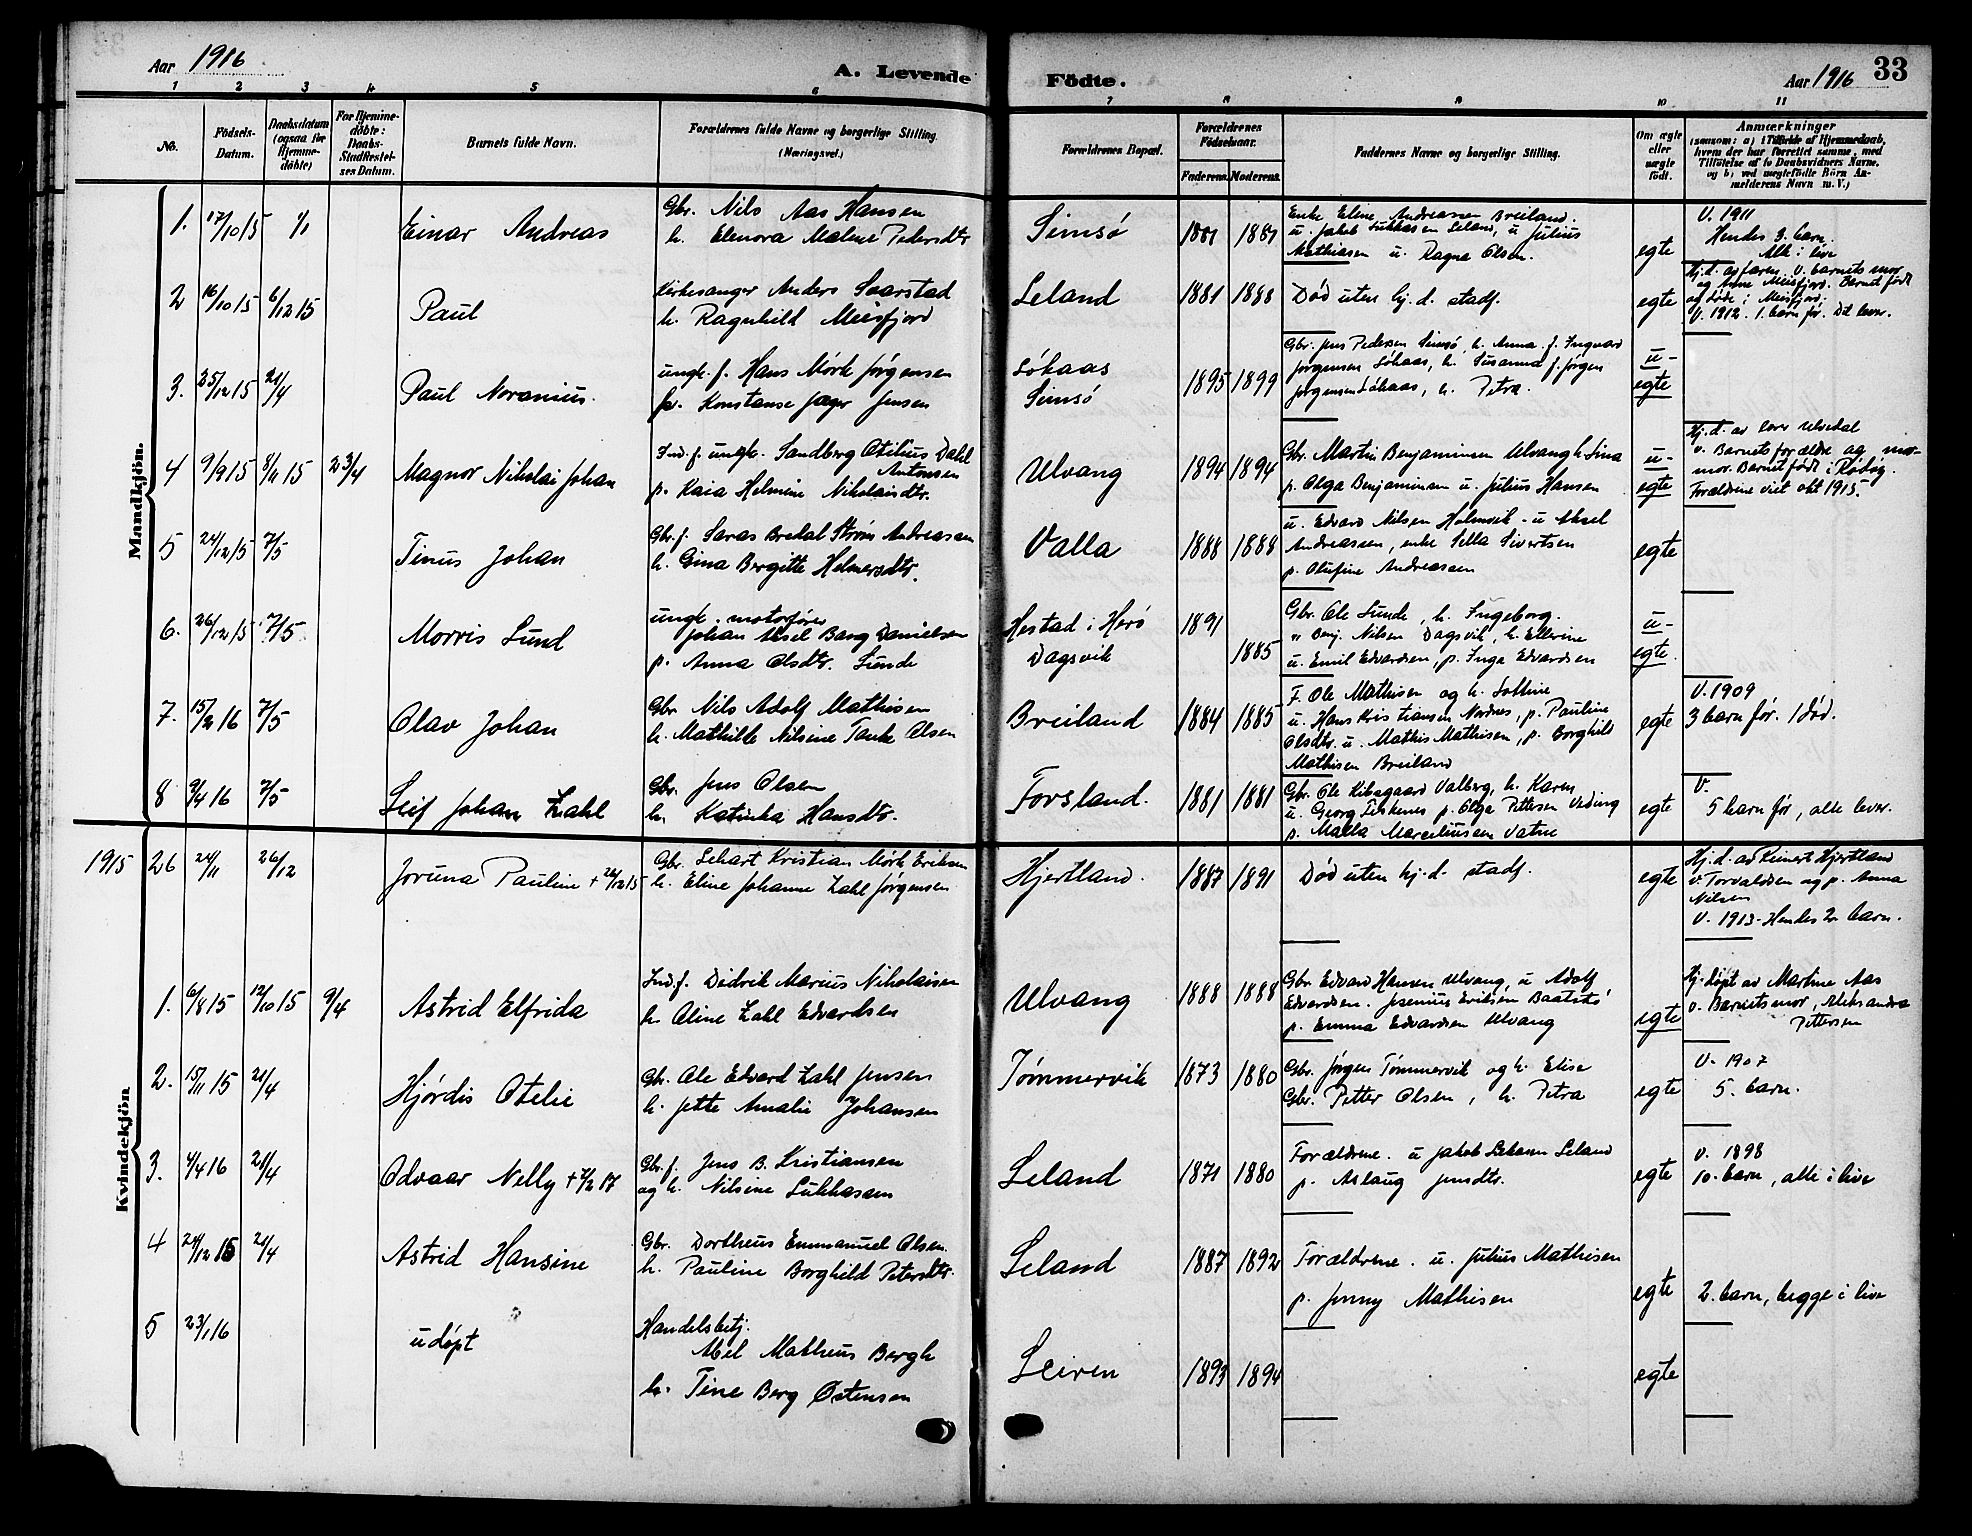 Aar 1916
A. Levende
Födte.
Aar 1916 33
1 2 3 4 5 6 7 8 9 10 11
No.
Födsels-
Datum.
Daabsdatum
(ogsaa for
Hjemme-
döbte)
For Hjemme-
döbte:
Daabs-
Stadfæstel-
ses Datum.
Barnets fulde Navn.
Forældrenes fulde Navne og borgerlige Stilling.
(Næringsvei.)
Forældrenes Bopæl.
Forældrenes
Födselsaar.
Faderens. Moderens.
Faddernes Navne og borgerlige Stilling.
Om ægte
eller
uægte
födt.
Anmærkninger
(saasom: a) i Tilfælde af Hjemmedaab,
hvem der har forrettet samme, med
Tilföielse af to Daabsvidners Navne,
og b) ved uægtefödte Börn An-
melderens Navn m. V.)
Mandkjön.
1. 17/10 15 1/1 Einar Andreas
Gbr. Nils Aas Hansen
h. Elenora Malene Pedersdtr
Simsö 1881 1881
Enke Eline Andreassen Breiland.
u. Jakob Lukkasen Leland, u Julius
Mathiasen u. Ragna Olsen.
egte
V. 1911
Hendes 3. barn.
Alle i live
2 16/10 15 6/12 15 Paul
Kirkesanger Anders Svarstad
h. Ragnhild Meisfjord
Leland 1881 1888 Död uten hj.d. stadf. egte
Hj.d. av faren v. barnets mor
og Anne Meisfjord. Barnet födt
og döbt i Meisfjord.
V. 1912. 1. barn för. Det lever.
3. 25/12 15 21/4 Paul Noranius.
ungk. f. Hans Mörk Jörgensen
p. Konstanse Jager Jensen
Lökaas
Simsö
1895 1899
Gbr. Jens Pedersen Simsö, h. Anna. f. Ingvard
Jörgensen Lökaas, h. Susanna f. Jörgen
Jörgensen Lökaas, h. Petra.
u-
egte
4 9/9 15 8/11 15 23/4 Magnor Nikolai Johan
Ind. f. ungk. Sandberg Otelius Dahl
Antonsen
p. Kaia Helmine Nikolaisdtr.
Ulvang 1894 1894
Gbr. Martin Benjaminsen Ulvang h. Lina
p. Olga Benjaminsen u. Julius Hansen
u-
egte
Hj.d. av
v. Barnets forældre og mor-
mor. Barnet födt i Rödöy.
Forældrene viet okt 1915.
5 24/12 15 7/5 Tinus Johan
Gbr. f. Saras Bredal Ström Andreassen
h. Gina Bergitte Helmersdtr.
Valla 1888 1888
u. Edvard Nilsen Holmvik - u Aksel
Andreassen, enke Sella Sivertsen
p. Olufine Andreassen
egte
6. 26/12 15 7/5. Morris Lund
ungk. motorförer
Johan Aksel Bang Danielsen
p. Anna Olsdtr. Lunde
Hestad i Herö
Dagsvik
1891
1885
Gbr. Ole Lunde, h. Ingeborg.
" Benj. Nilsen Dagsvik, h. Ellerine
u. Emil Edvardsen, p. Inga Edvardsen
u-
egte.
7. 15/2 16 7/5 Olav Johan
Gbr Nils Adolf Mathisen
h. Mathilde Nilsine Tanke Olsen
Breiland 1884 1885
F. Ole Mathisen og h. Lottine
u. Hans Kristiansen Nordnes, p. Pauline
Olsdtr. u. Mathis Mathisen, p. Borghild
Mathisen Breiland
egte
V. 1909
3 barn för. 1 död.
8 9/4 16 7/5 Leif Johan Zahl
Gbr. Jens Olsen
h. Katinka Hansdtr.
Forsland. 1881 1881
Gbr. Ole Kibsgaard Valberg, h. Karen
u. Georg Telsknes p. Olga Pettersen Veding
p. Malla Marceliussen Vatne
egte
V.
5 barn för, alle lever.
Kvindekjön
1915 26 24/11 26/12 Joruna Pauline + 26/12 15
Gbr. Lehart Kristian Mörk Eriksen
h. Eline Johanne Zahl Jörgensen
Hjertland. 1887 1891 Död uten hj.d. stadf. egte
Hj.d. av Reinert Hjertland
v. Torvaldsen og p. Anna
Nilsen
V. 1913 - Hendes 2n barn.
1. 6/8 15 12/10 15 9/4 Astrid Elfrida
Ind. f. Didrik Marius Nikolaisen
h. Aline Zahl Edvardsen
Ulvang 1888 1888
Gbr Edvard Hansen Ulvang, u Adolf
Edvardsen. Josenius Eriksen Baatstö
p. Emma Edvardsen Ulvang
egte
Hj. döpt av Martine Aas
v. Barnets mor, Aleksandra
Pettersen
2. 15/11 15 21/4 Hjördis Otelie
Gbr. Ole Edvard Zahl Jensen
h. Jette Amalie Johansen
Tömmervik 1873 1880
Gbr. Jörgen Tömmervik og h. Elise
Gbr. Petter Olsen, h. Petra
egte
V. 1907
5. barn.
3. 4/4 16 21/4 Odvaar Nelly + 7/2 17
Gbr. f. Jens B. Kristiansen
og h. Nilsine Lukkassen
Leland 1871 1880
Forældrene. u Jakob Lekasen Leland
p. Aslaug Jensdtr.
egte
V. 1898
10. barn, alle i live
4 24/12 15 21/4 Astrid Hansine
Gbr. Dortheus Emmanuel Olsen
h. Pauline Borghild Petersdtr.
Leland 1887 1892
Forældrene. u. Julius Mathisen
p. Jenny Mathisen
egte 2. barn, begge i live
5 23/1 16 udöpt
Handelsbetj.
Abel Matheus Bergh
h. Tine Berg Östensen
Leiren 1893 1894 egte